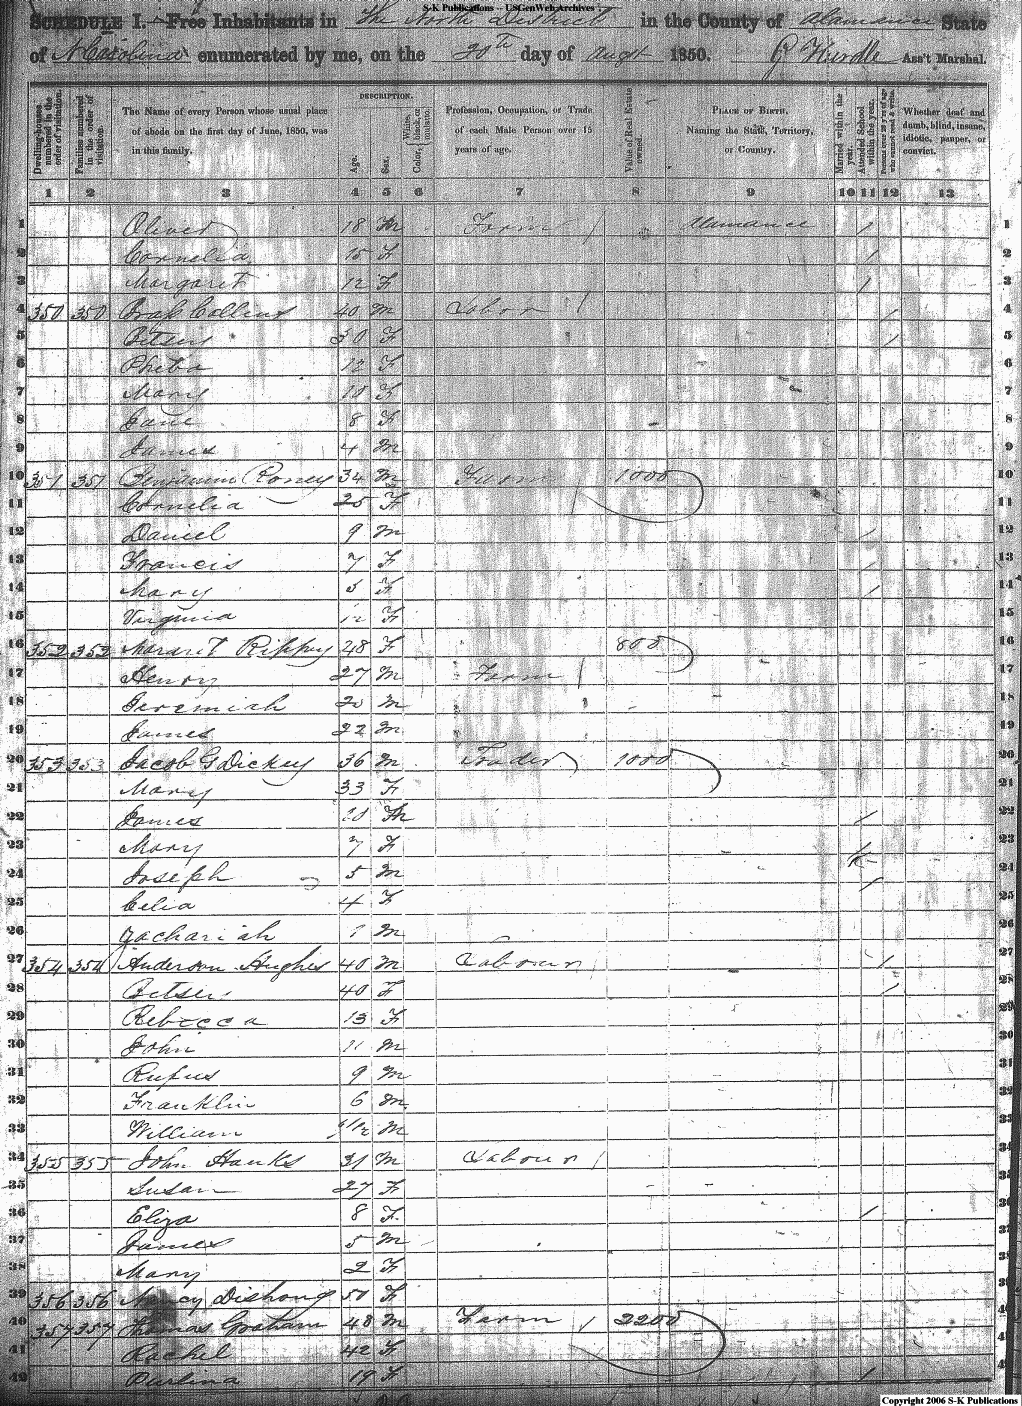 S-K Publications -- USGenWeb Archives
SCHEDULE I.—Free Inhabitants in The North District in the County of Alamance State
of N Carolina enumerated by me, on the 20th day of Augt 1850. G Hurdle Ass't Marshal.
Dwelling-houses numbered in the order of visitation.
Families numbered in the order of visitation.
The Name of every Person whose usual place of abode on the first day of June, 1850, was in this family.
DESCRIPTION.
Age.
Sex.
Color, White, black, or mulatto.
Profession, Occupation, or Trade of each Male Person over 15 years of age.
Value of Real Estate owned.
PLACE OF BIRTH, Naming the State, Territory, or Country.
Married within the year.
Attended School within the year.
Persons over 20 y'rs of age who cannot read & write.
Whether deaf and dumb, blind, insane, idiotic, pauper, or convict.
1 2 3 4 5 6 7 8 9 10 11 12 13
1 Oliver 18 M Farm / Alamance / 1
2 Cornelia 15 F / 2
3 Margaret 12 F / 3
4 350 350 Collins 40 M Labor / / 4
5 Betsey 30 F / 5
6 Pheba 12 F 6
7 Mary 10 F 7
8 Jane 8 F 8
9 James 4 M 9
10 351 351 Benjamin Roney 34 M Farm 1000 10
11 Cornelia 25 F 11
12 Daniel 9 M / 12
13 Francis 7 F / 13
14 Mary 5 F / 14
15 Virginia F 15
16 352 352 Margaret Rippey 48 F 800 16
17 Henry 27 M Farm / 17
18 Jeremiah 20 M 18
19 James 22 M 19
20 353 353 Jacob G Dickey 36 M Trader 1000 20
21 Mary 33 F 21
22 James 10 M / 22
23 Mary 7 F 23
24 Joseph 5 M / 24
25 Celia 4 F 25
26 Zachariah 1 M 26
27 354 354 Anderson Hughes 40 M Labour / / 27
28 Betsey 40 F / 28
29 Rebecca 13 F 29
30 John 11 M 30
31 Rufus 9 M 31
32 Franklin 6 M 32
33 William 11/12 M 33
34 355 355 John Hanks 31 M Labour / 34
35 Susan 27 F 35
36 Eliza 8 F / 36
37 James 5 M 37
38 Mary 2 F 38
39 356 356 Nancy Dishong 50 F
40 357 357 Thomas Graham 48 M Farm / 2200
41 Rachel 42 F
42 19 F /
Copyright 2006 S-K Publications